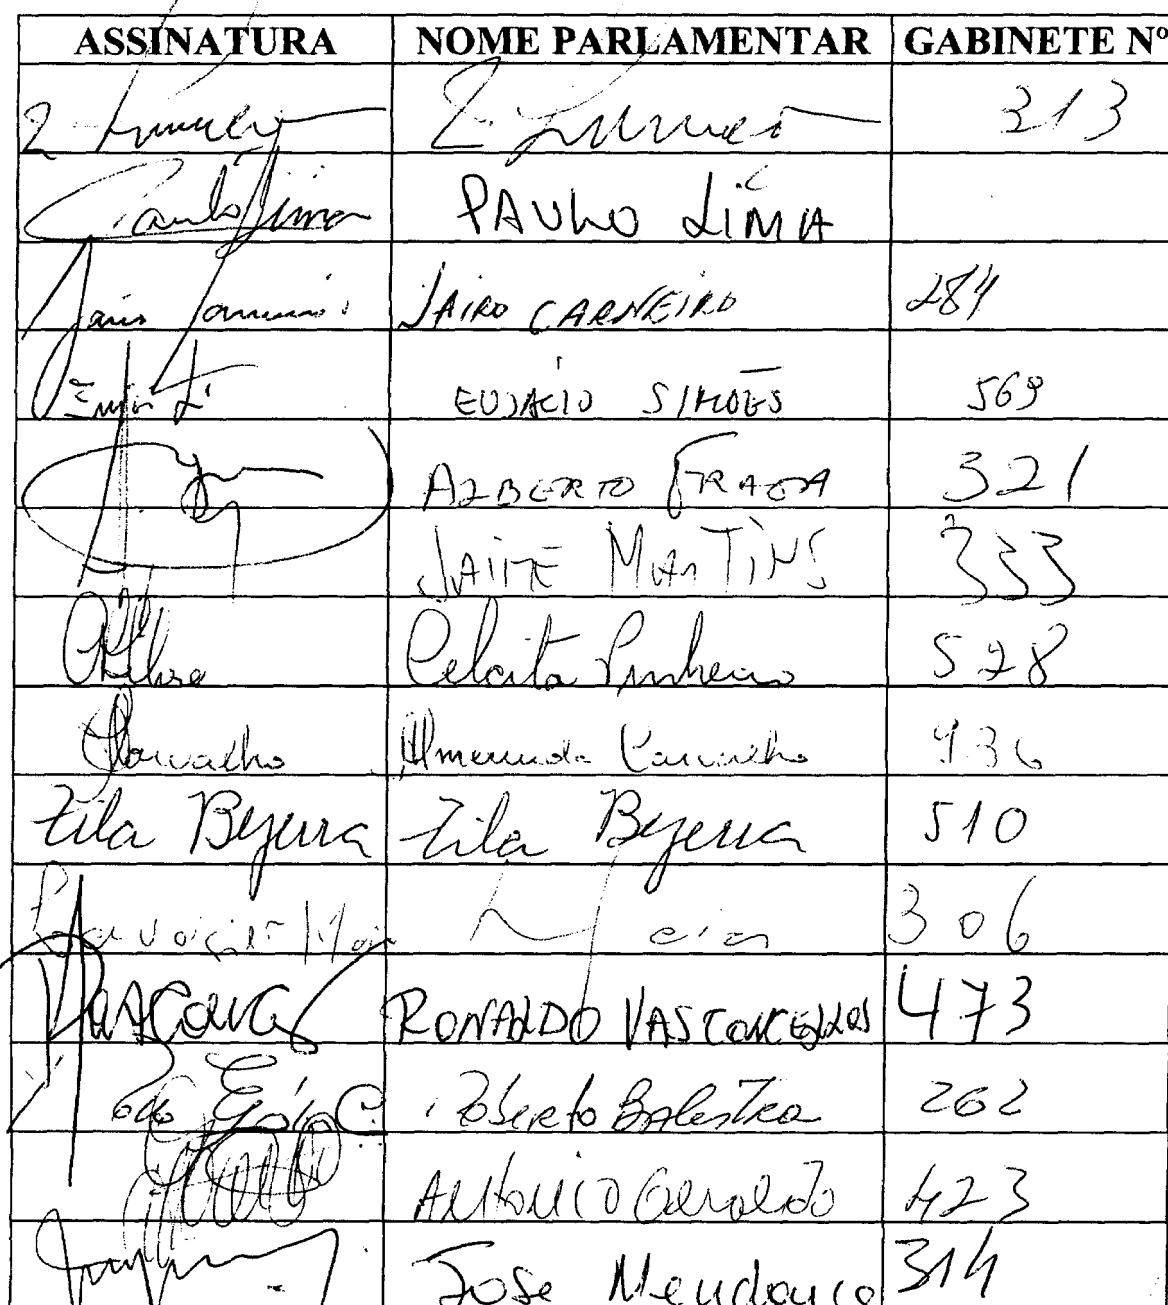 ASSINATURA NOME PARLAMENTAR GABINETE Nº
313
Paulo Lima PAULO LIMA
Jairo Carneiro JAIRO CARNEIRO 284
EUJÁCIO SIMÕES 569
ALBERTO FRAGA 321
JAIME MARTINS 333
Celcita Pinheiro 528
Carvalho Almerinda Carvalho 436
Zila Bezerra Zila Bezerra 510
Lavoisier Maia L Maia 306
RONALDO VASCONCELLOS 473
Roberto Balestra 262
Antonio Geraldo 423
José Mendonça 314